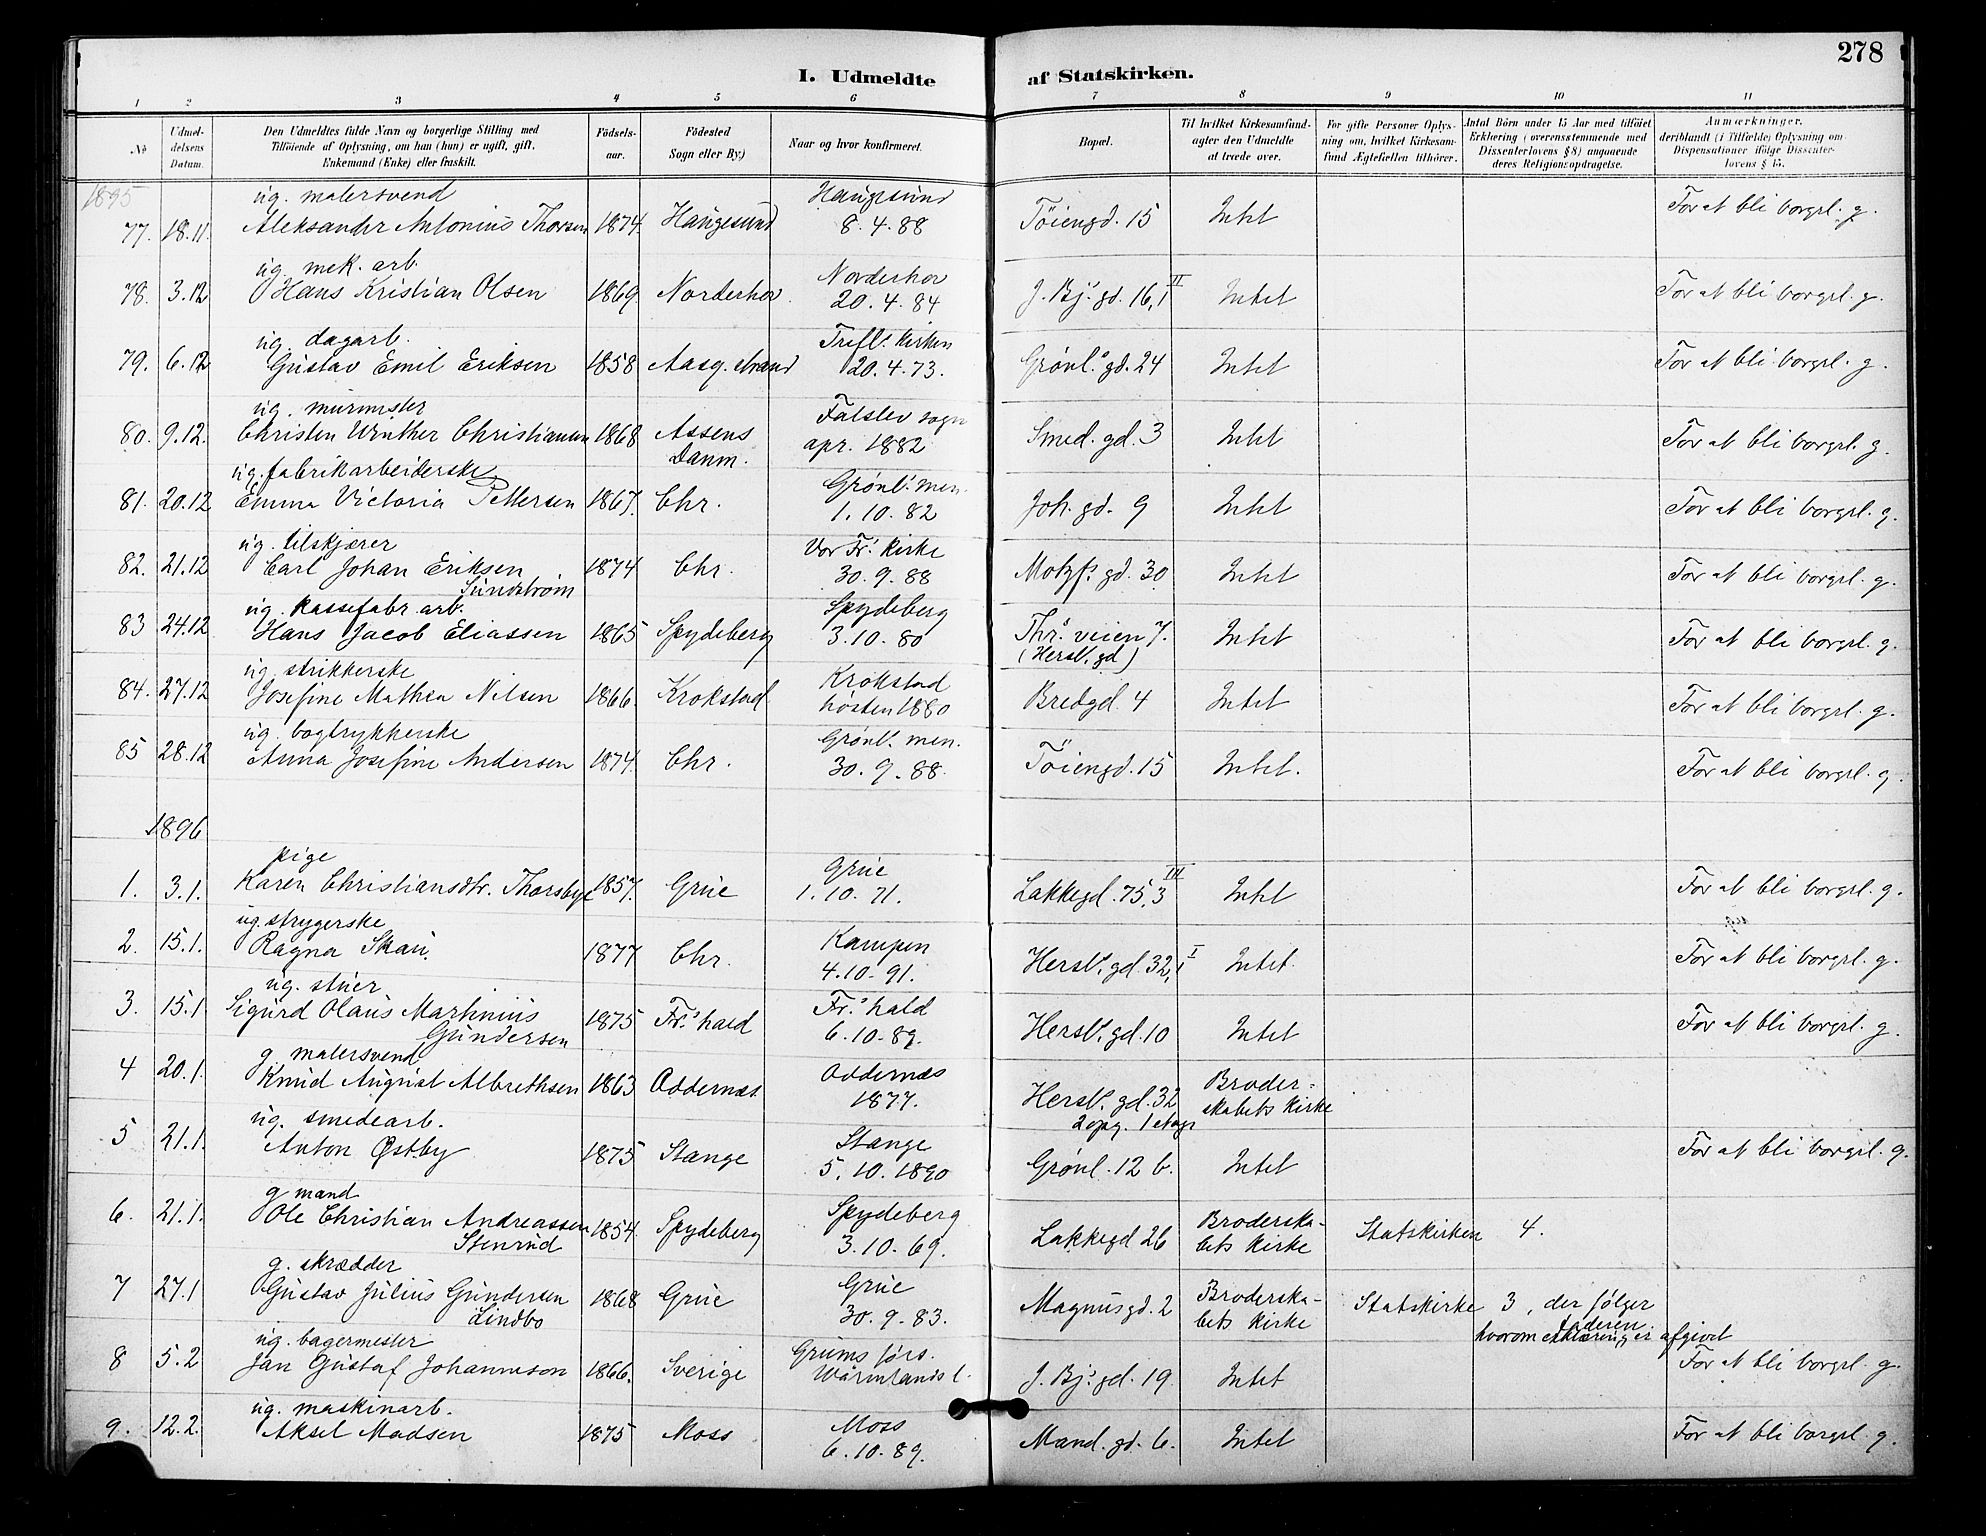 278
I. Udmeldte af Statskirken.
1 2 3 4 5 6 7 8 9 10 11
№
Udmel-
delsens
Datum.
Den Udmeldtes fulde Navn og borgerlige Stilling med
Tilföiende af Oplysning, om han (hun) er ugift, gift,
Enkemand (Enke) eller fraskilt.
Födsels-
aar.
Födested
Sogn eller By.)
Naar og hvor konfirmeret.
Bopæl.
Til hvilket Kirkesamfund-
agter den Udmeldte
at træde over.
For gifte Personer Oplys-
ning om, hvilket Kirkesam-
fund Ægtefællen tilhörer.
Antal Börn under 15 Aar med tilföiet
Erklæring (overensstemmende med
Dissenterlovens § 8) angaaende
deres Religionsopdragelse.
Anmærkninger,
deriblandt (i Tilfælde) Oplysning om
Dispensationer ifölge Dissenter-
lovens § 15.
1895
ug. malersvend Haugesund
77. 18.11. Aleksander Antonius Thorsen 1874. Haugesund 8.4.88 Töiengd. 15 Intet For at bli borgerl. g.
ug. mek. arb. Norderhov II
78. 3.12 Hans Kristian Olsen 1869 Norderhov. 20.4.84 J. Bj.s gd. 16,1 Intet For at bli borgerl. g.
ug. dagarb. Trefl.s Kirken
79. 6.12 Gustav Emil Eriksen 1858 Aasg. strand 20.4.73. Grönl.s gd. 24 Intet For at bli borgerl. g.
ug. murmester Falslev sogn
80. 9.12. Christen Winther Christiansen 1868 Assens Danm. apr. 1882 Smed. gd. 3 Intet For at bli borgerl. g.
ug. fabrikarbeiderske Grönl. men.
81. 20.12 Emma Victoria Pettersen 1867. Chr. 1.10.82 Joh. gd. 9 Intet For at bli borgerl. g.
ug. tilskjærer Vor Fr.s Kirke
82. 21.12 Carl Johan Eriksen 1874 Chr. 30.9.88 Motzf.s gd. 30 Intet For at bli borgerl. g.
Sundström
ug. kassefabr. arb. Spydeberg
83 24.12 Hans Jacob Eliassen 1865 Spydeberg 3.10.80 Thr.s veien 7. Intet For at bli borgerl. g.
(Hersl. gd)
ug. strikkerske Krokstad
84. 27.12 Josefine Mathea Nilsen 1866. Krokstad hösten 1880 Bredgd. 4 Intet For at bli borgerl. g.
ug. bogtrykkerske Grönl. men.
85 28.12 Anna Josefine Andersen 1874. Chr. 30.9.88. Töiengd. 15 Intet. For at bli borgerl. g.
1896
pige Grue III
1. 3.1. Karen Christiansdtr. Thorsbye 1857. Grue 1.10.71. Lakkegd. 75,3 Intet For at bli borgerl. g.
ug. strygerske Kampen I
2. 15.1. Ragna Skau. 1877 Chr. 4.10.91. Hersl. gd. 32,1 Intet. For at bli borgerl. g.
ug. stuer Fr.s hald
3. 15.1 Sigurd Olaus Martinius 1875 Fr.s hald 6.10.89. Hersl. gd. 10 Intet For at bli borgerl. g.
Gundersen
g. malersvend Oddernæs Broder-
4 20.1. Knud August Albrethsen 1863 Oddernæs. 1877. Hersl. gd. 32 skabets Kirke
2 opg. 1 etage
ug. smedearb. Stange
5 21.1. Anton Østby 1875 Stange 5.10.1890 Grönl. 12 b. Intet For at bli borgerl. g.
g mand Spydeberg Broderska-
6. 21.1. Ole Christian Andreassen 1854. Spydeberg 3.10.69. Lakkegd 26 bets Kirke Statskirken 4.
Stenrud
g. skrædder Grue Broderska-
7 27.1 Gustav Julius Gundersen 1868 Grue 30.9.83. Magnusgd. 2 bets Kirke Statskirke 3, der følger
Lindbo faderen.
hvorom erklæring er afgivet
ug. bagermester Grums förs.
8 5.2 Jan Gustaf Johannsson 1866. Sverige Wärmlands l. J. Bj.s gd. 19 Intet For at bli borgerl. g.
ug. maskinarb. Moss
9. 12.2. Aksel Madsen 1875 Moss 6.10.89. Mand. gd. 6. Intet For at bli borgerl. g.